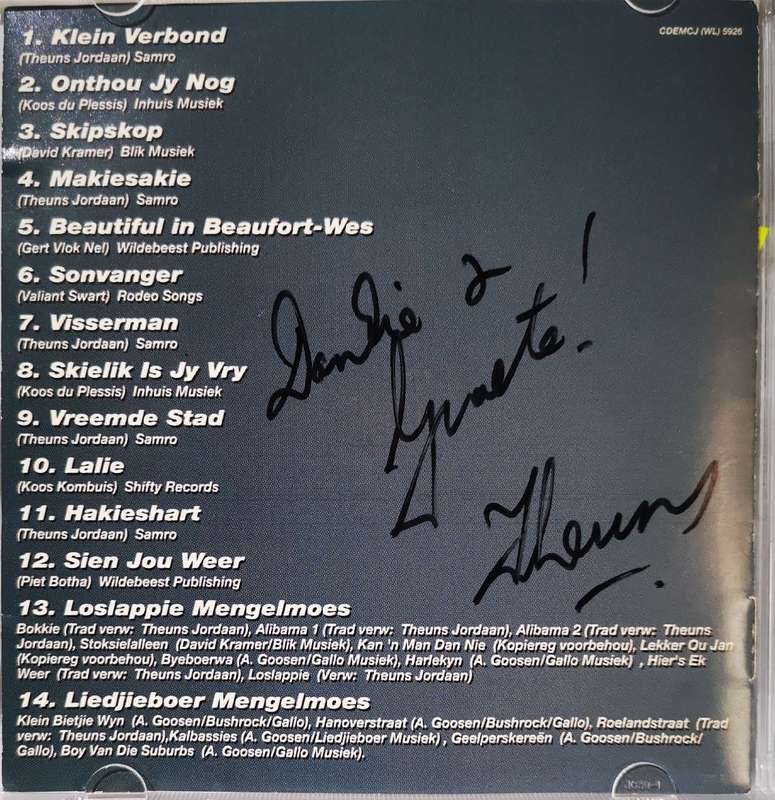 CDEMCJ (WL) 5926
1. Klein Verbond
(Theuns Jordaan) Samro
2. Onthou Jy Nog
(Koos du Plessis) Inhuis Musiek
3. Skipskop
(David Kramer) Blik Musiek
4. Makiesakie
(Theuns Jordaan) Samro
5. Beautiful in Beaufort-Wes
(Gert Vlok Nel) Wildebeest Publishing
6. Sonvanger
(Valiant Swart) Rodeo Songs
7. Visserman
(Theuns Jordaan) Samro
8. Skielik Is Jy Vry
(Koos du Plessis) Inhuis Musiek
9. Vreemde Stad
(Theuns Jordaan) Samro
10. Lalie
(Koos Kombuis) Shifty Records
11. Hakieshart
(Theuns Jordaan) Samro
12. Sien Jou Weer
(Piet Botha) Wildebeest Publishing
13. Loslappie Mengelmoes
Bokkie (Trad verw: Theuns Jordaan), Alibama 1 (Trad verw: Theuns Jordaan), Alibama 2 (Trad verw: Theuns
Jordaan), Stoksielalleen (David Kramer/Blik Musiek), Kan 'n Man Dan Nie (Kopiereg voorbehou), Lekker Ou Jan
(Kopiereg voorbehou), Byeboerwa (A. Goosen/Gallo Musiek), Harlekyn (A. Goosen/Gallo Musiek) , Hier's Ek
Weer (Trad verw: Theuns Jordaan), Loslappie (Verw: Theuns Jordaan)
14. Liedjieboer Mengelmoes
Klein Bietjie Wyn (A. Goosen/Bushrock/Gallo), Hanoverstraat (A. Goosen/Bushrock/Gallo), Roelandstraat (Trad
verw: Theuns Jordaan),Kalbassies (A. Goosen/Liedjieboer Musiek) , Geelperskereën (A. Goosen/Bushrock/
Gallo), Boy Van Die Suburbs (A. Goosen/Gallo Musiek).
Dankie
Theuns